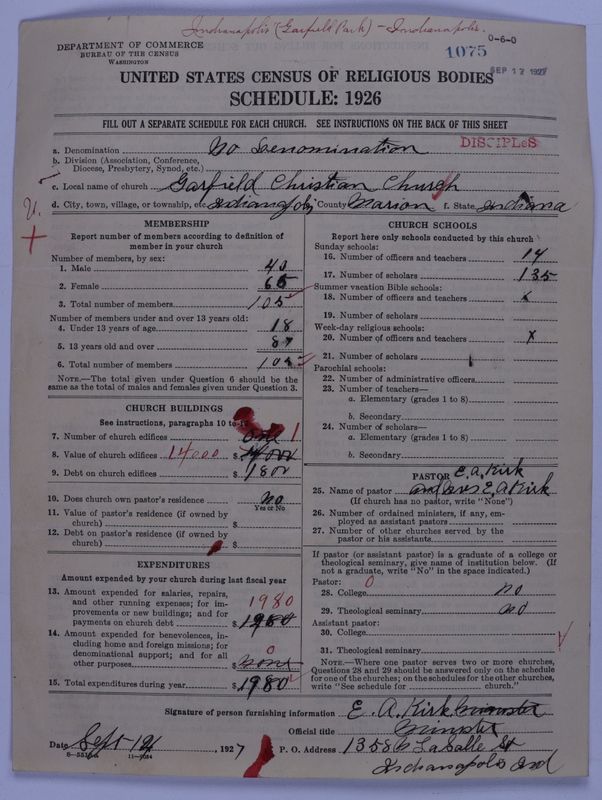 Indianapolis (Garfield Park) - Indianapolis.
0-6-0
1075
SEP 17 1927
DEPARTMENT OF COMMERCE
BUREAU OF THE CENSUS
WASHINGTON
UNITED STATES CENSUS OF RELIGIOUS BODIES
SCHEDULE: 1926
FILL OUT A SEPARATE SCHEDULE FOR EACH CHURCH. SEE INSTRUCTIONS ON THE BACK OF THIS SHEET
DISCIPLES
a. Denomination No Denomination
b. Division (Association, Conference,
Diocese, Presbytery, Synod, etc.)
c. Local name of church Garfield Christian Church
d. City, town, village, or township, etc. Indianapolis County Marion f. State Indiana
MEMBERSHIP
Report number of members according to definition of
member in your church
Number of members, by sex:
1. Male 40
2. Female 65
3. Total number of members 105
Number of members under and over 13 years old:
4. Under 13 years of age 18
5. 13 years old and over 87
6. Total number of members 105
NOTE.—The total given under Question 6 should be the
same as the total of males and females given under Question 3.
CHURCH BUILDINGS
See instructions, paragraphs 10 to 12
7. Number of church edifices one 1
8. Value of church edifices 14000 $ 14000
9. Debt on church edifices $ 1800
10. Does church own pastor's residence No
Yes or No
11. Value of pastor's residence (if owned by
church) $
12. Debt on pastor's residence (if owned by
church) $
EXPENDITURES
Amount expended by your church during last fiscal year
13. Amount expended for salaries, repairs,
and other running expenses; for im-
provements or new buildings; and for
payments on church debt 1980 $ 1980
14. Amount expended for benevolences, in-
cluding home and foreign missions; for
denominational support; and for all
other purposes 0 $ none
15. Total expenditures during year $ 1980
CHURCH SCHOOLS
Report here only schools conducted by this church
Sunday schools:
16. Number of officers and teachers 14
17. Number of scholars 135
Summer vacation Bible schools:
18. Number of officers and teachers x
19. Number of scholars
Week-day religious schools:
20. Number of officers and teachers x
21. Number of scholars
Parochial schools:
22. Number of administrative officers
23. Number of teachers—
a. Elementary (grades 1 to 8)
b. Secondary
24. Number of scholars—
a. Elementary (grades 1 to 8)
b. Secondary
PASTOR E. A. Kirk
25. Name of pastor E. A. Kirk
(If church has no pastor, write "None")
26. Number of ordained ministers, if any, em-
ployed as assistant pastors
27. Number of other churches served by the
pastor or his assistants
If pastor (or assistant pastor) is a graduate of a college or
theological seminary, give name of institution below. (If
not a graduate, write "No" in the space indicated.)
Pastor: 0
28. College no
29. Theological seminary no
Assistant pastor:
30. College
31. Theological seminary
NOTE.—Where one pastor serves two or more churches,
Questions 28 and 29 should be answered only on the schedule
for one of the churches; on the schedules for the other churches,
write "See schedule for church."
Signature of person furnishing information E. A. Kirk Minister
Official title Minister
Date Sept 14, 1927 P. O. Address 1358 LaSalle St
Indianapolis Ind